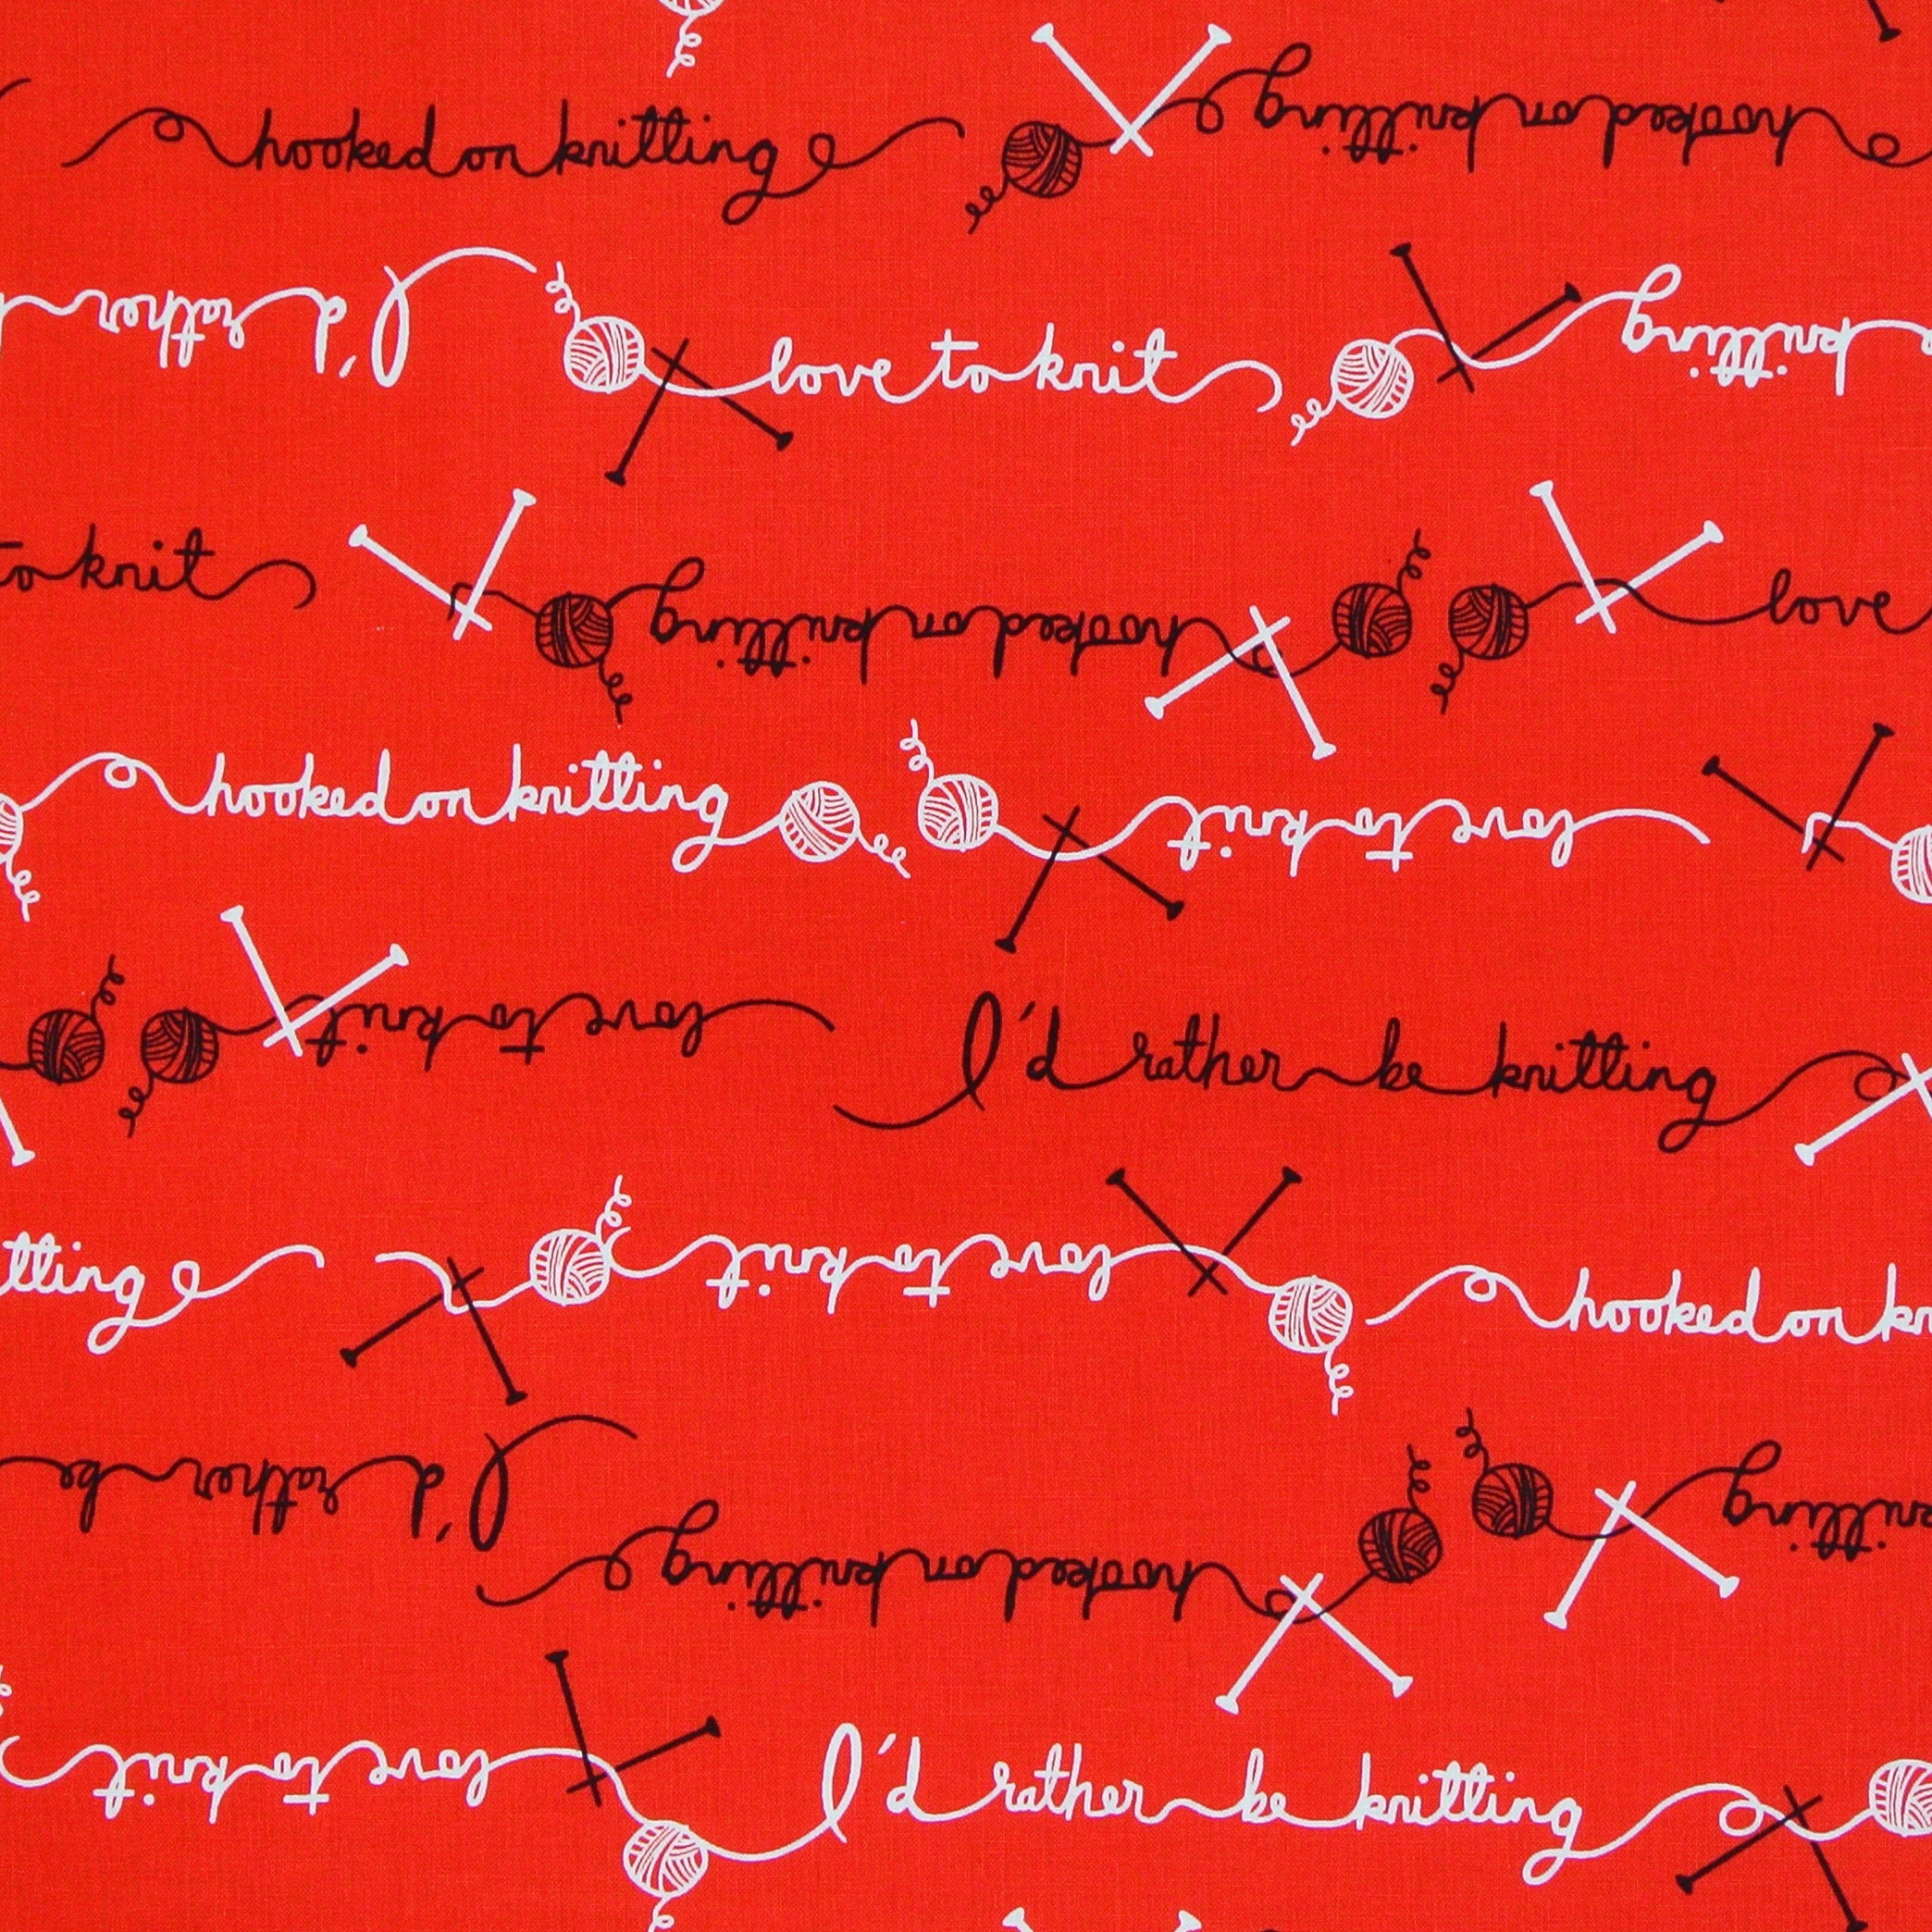 hooked on knitting hooked on knitting
I'd rather love to knit knitting
to knit hooked on knitting love
hooked on knitting love to knit
love to knit I'd rather be knitting
tting love to knit hooked on kn
I'd rather be knitting
hooked on knitting
love to knit I'd rather be knitting